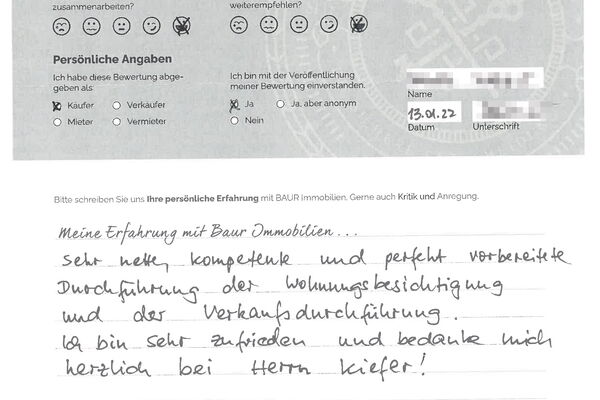 zusammenarbeiten?
weiterempfehlen?
Persönliche Angaben
Ich habe diese Bewertung abge-
geben als:
Käufer
Verkäufer
Mieter
Vermieter
Ich bin mit der Veröffentlichung
meiner Bewertung einverstanden.
Ja
Ja, aber anonym
Nein
Name
13.01.22
Datum
Unterschrift
Bitte schreiben Sie uns Ihre persönliche Erfahrung mit BAUR Immobilien. Gerne auch Kritik und Anregung.
Meine Erfahrung mit Baur Immobilien...
Sehr nette, kompetente und perfekt vorbereitete
Durchführung der Wohnungsbesichtigung
und der Verkaufsdurchführung.
Ich bin sehr zufrieden und bedanke mich
herzlich bei Herrn Kiefer!